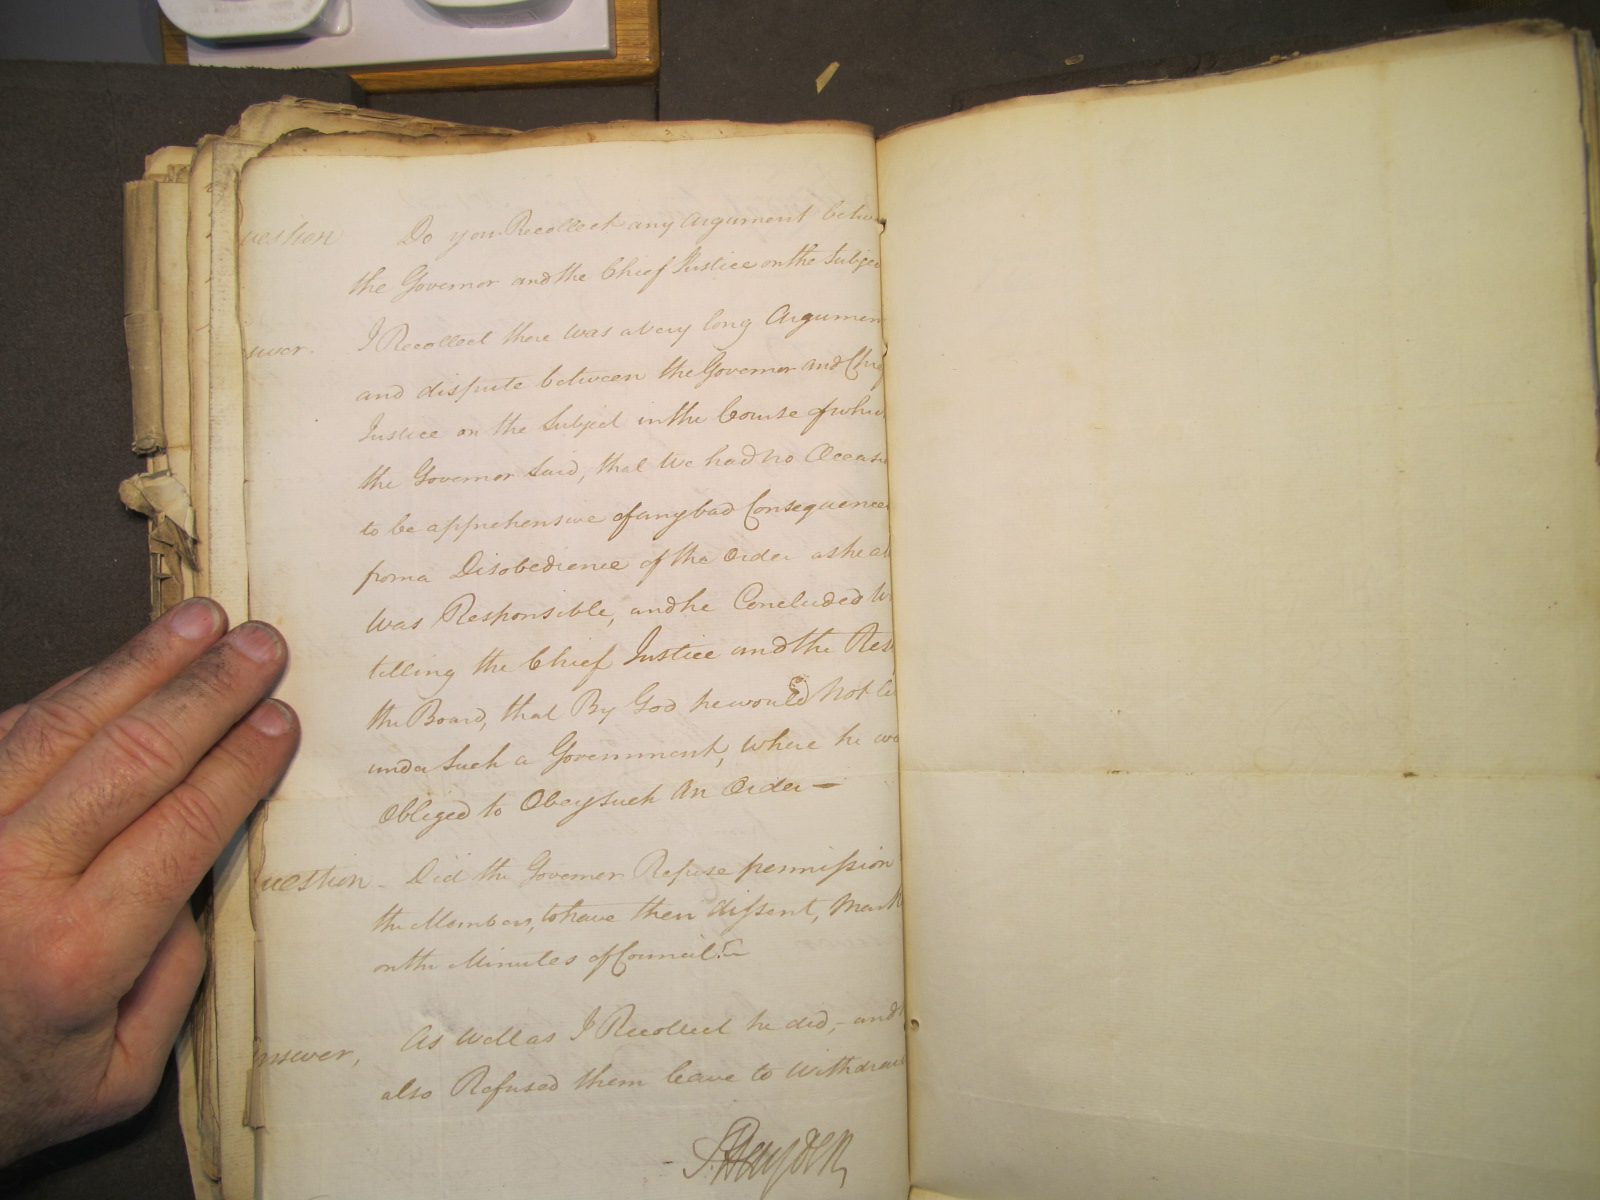 uestion Do you Recollect any Argument betw
the Governor and the Chief Justice on the Subjec
swer. I Recollect there was a very long Argumen
and dispute between the Governor and Chie
Justice on the Subject in the Course of whic
the Governor Said, that We had no Occasi
to be apprehensive of any bad Consequence
from a Disobedience of the Order as he al
was Responsible, and he Concluded Wi
telling the Chief Justice and the Res
the Board, that By God he would Not li
under Such a Government, where he wo
Obliged to Obey Such An Order —
uestion - Did the Governor Refuse permission
the Members, to have their dissent, Mark
on the Minutes of Council? —
nswer, As Well as I Recollect he did, - and
also Refused them leave to Withdraw